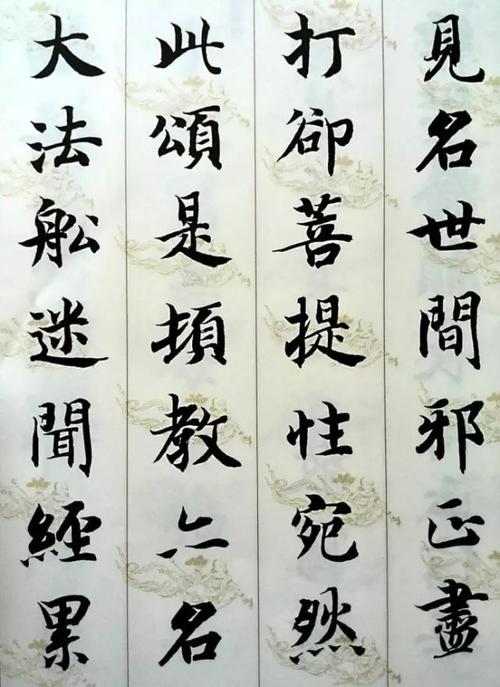 見名世間邪正盡
打卻菩提性宛然
此頌是頓教亦名
大法船迷聞經累